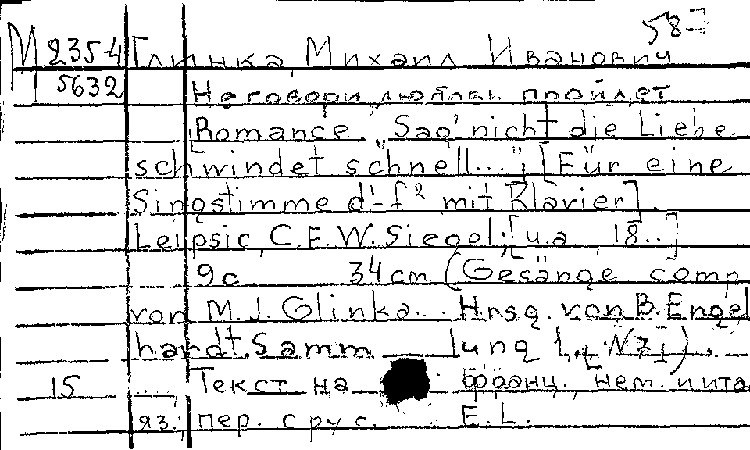 58-
М 2354 Глинка, Михаил Иванович
5632 Не говори, любовь пройдет
Romance. "Sag' nicht die Liebe
schwindet schnell..."; [Für eine
Singstimme d¹-f² mit Klavier].
Leipsic, C.F.W. Siegel; [u.a. 18..]
9c 34 cm (Gesänge comp.
von M.J. Glinka. Hrsg. von B. Engel
hardt. Samm lung 1, N71).
15 Текст на франц., нем. и ита
яз.; пер. с рус. E.L.